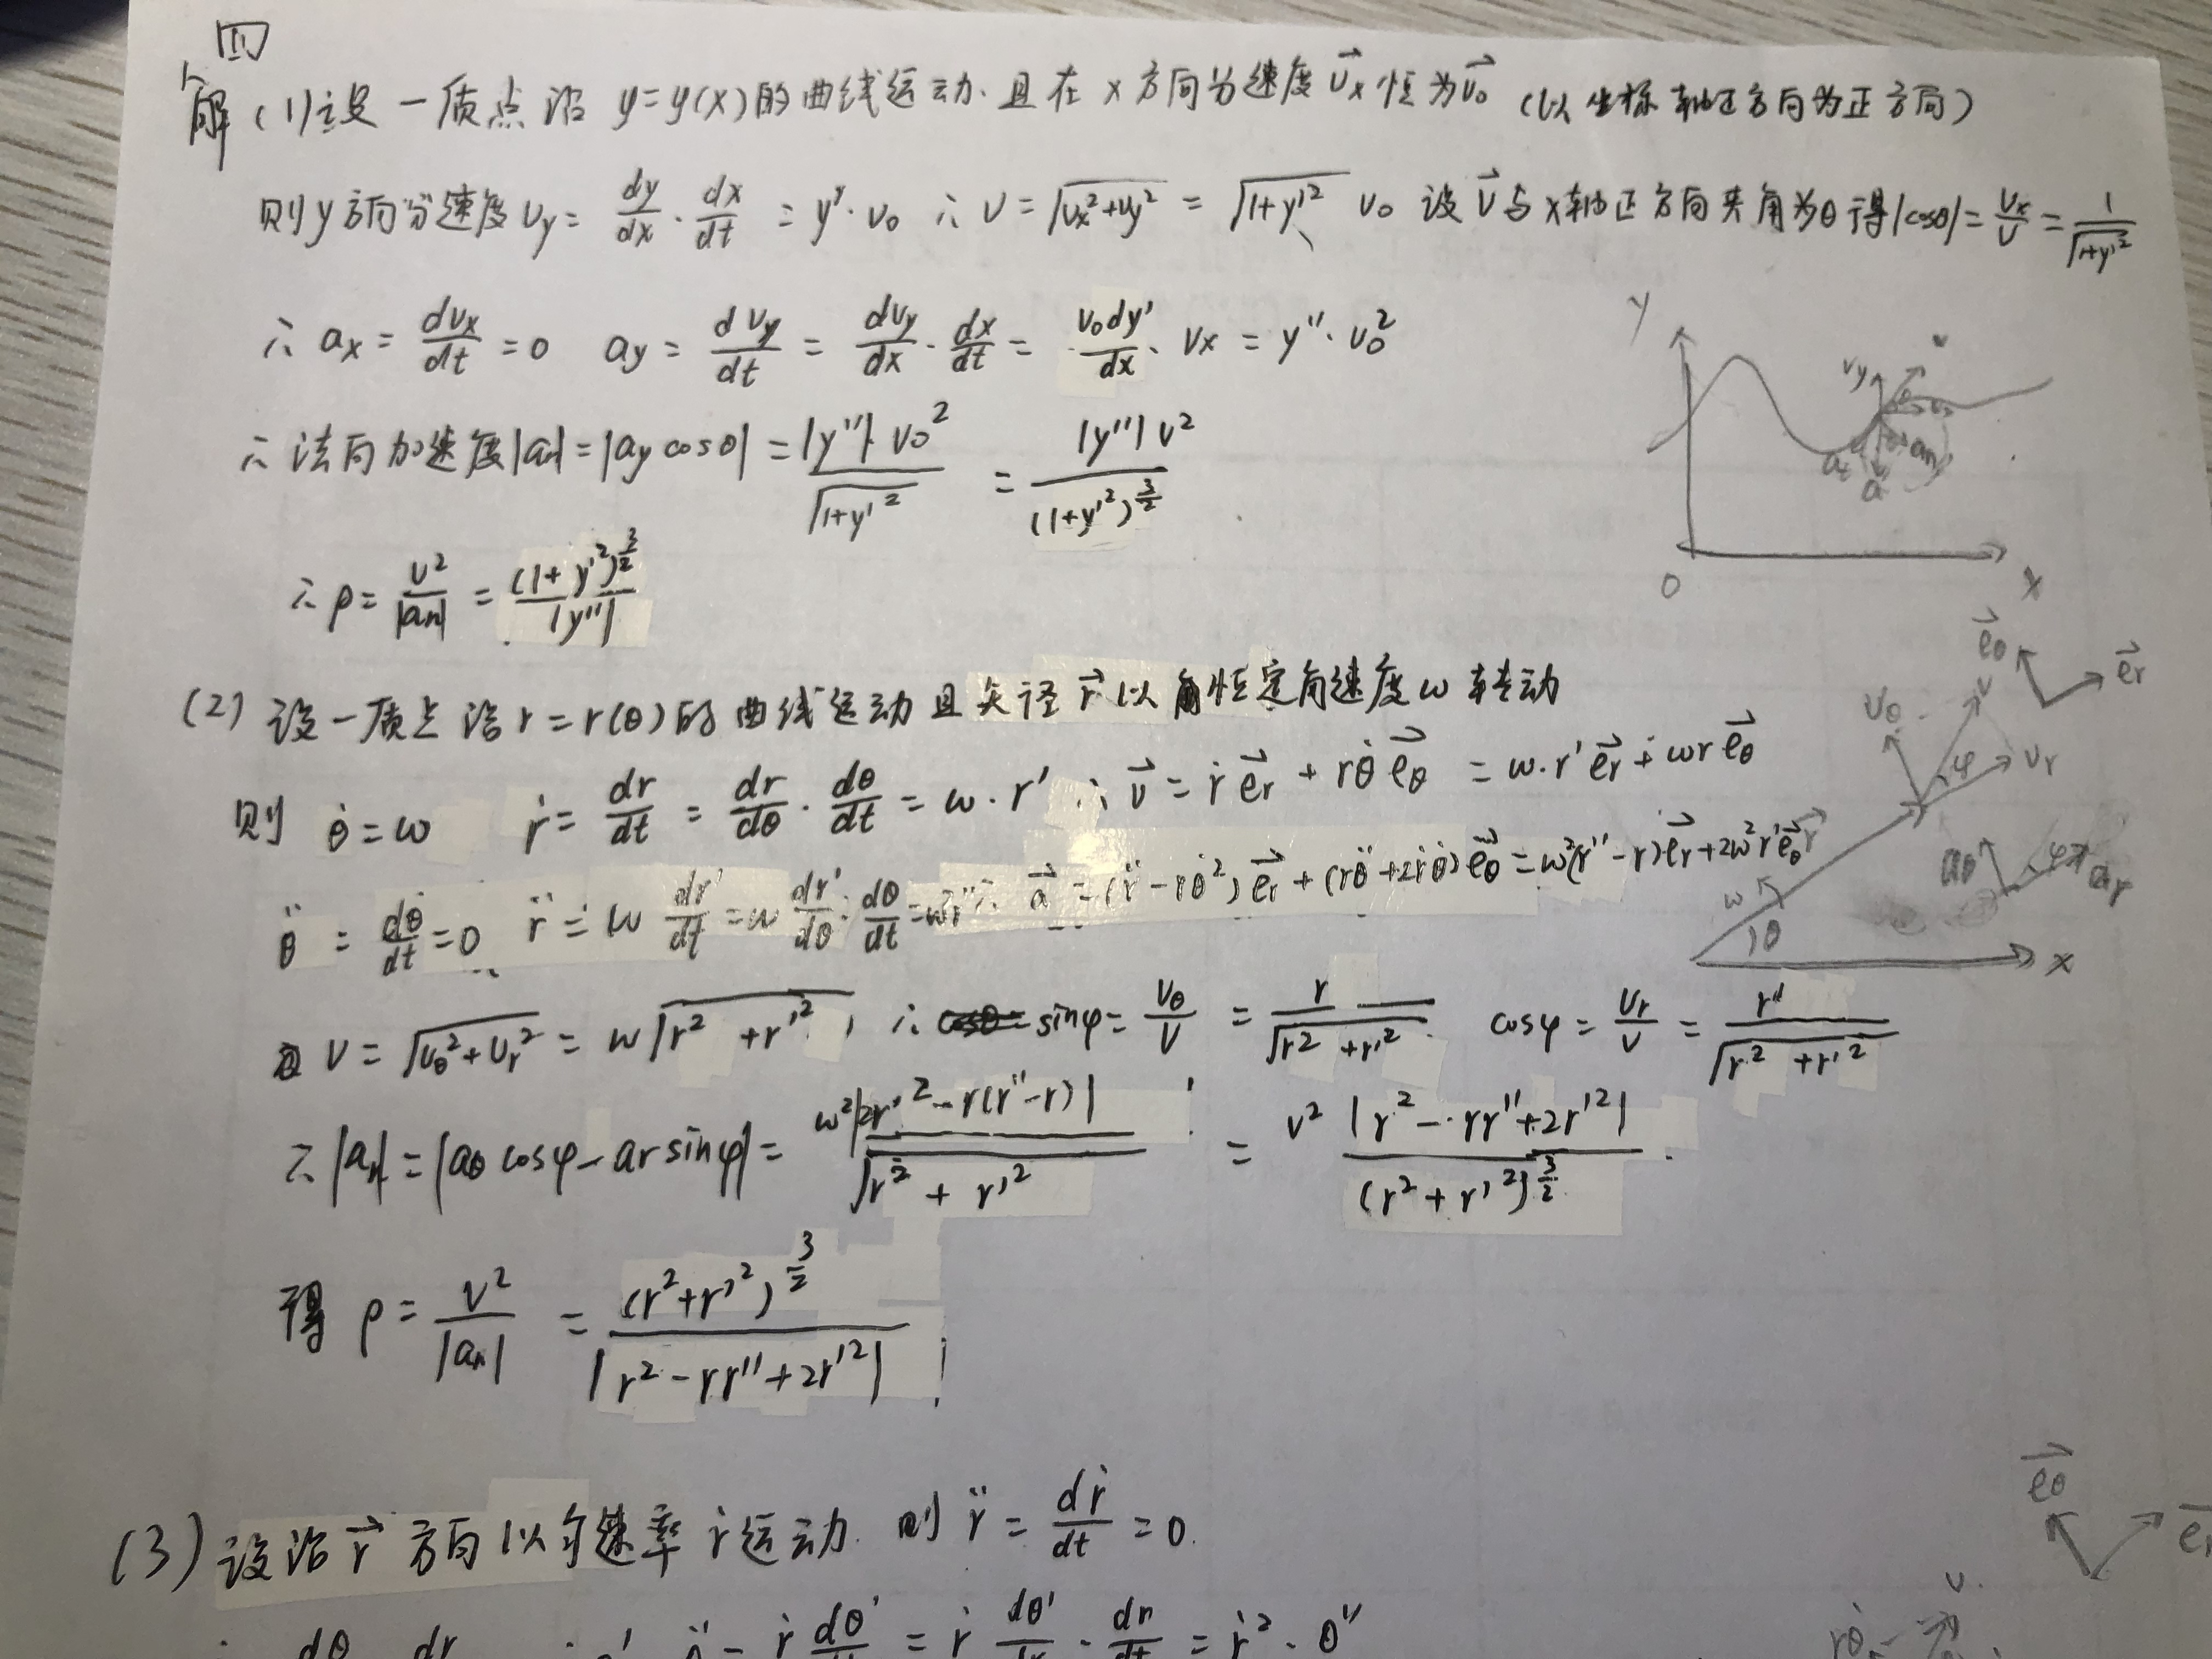 四
解 (1)设一质点沿 y=y(x)的曲线运动. 且在 x 方向分速度 v⃗x 恒为 v⃗0 (以坐标轴正方向为正方向)
则y方向分速度 vy = dy/dx · dx/dt = y'·v0 ∴ v = √(vx²+vy²) = √(1+y'²) v0 设 v⃗ 与x轴正方向夹角为θ 得|cosθ| = vx/v = 1/√(1+y'²)
∴ ax = dvx/dt = 0 ay = dvy/dt = dvy/dx · dx/dt = v0dy'/dx · vx = y''·v0²
∴ 法向加速度|an| = |ay cosθ| = |y''|·v0²/√(1+y'²) = |y''|v²/(1+y'²)^(3/2)
∴ ρ = v²/|an| = (1+y'²)^(3/2)/|y''|
y
vy
v
θ
at
an
a
O
x
(2) 设一质点沿 r=r(θ)的曲线运动且矢径 r⃗ 以恒定角速度ω转动
则 θ̇=ω ṙ = dr/dt = dr/dθ · dθ/dt = ω·r' ∴ v⃗ = ṙ e⃗r + rθ̇ e⃗θ = ω·r' e⃗r + ωr e⃗θ
θ̈ = dθ̇/dt = 0 r̈ = ω dr'/dt = ω dr'/dθ · dθ/dt = ω²r'' ∴ a⃗ = (r̈ - rθ̇²) e⃗r + (rθ̈+2ṙθ̇) e⃗θ = ω²(r''-r)e⃗r + 2ω²r'e⃗θ
v = √(vθ²+vr²) = ω√(r²+r'²), ∴ sinφ = vθ/v = r/√(r²+r'²) cosφ = vr/v = r'/√(r²+r'²)
∴ |an| = |aθ cosφ - ar sinφ| = ω²|2r'²-r(r''-r)|/√(r²+r'²) = v²|r²-rr''+2r'²|/(r²+r'²)^(3/2)
得 ρ = v²/|an| = (r²+r'²)^(3/2)/|r²-rr''+2r'²|
e⃗θ
e⃗r
vθ
v
vr
φ
r⃗
aθ
φ
ar
ω
θ
x
(3) 设沿 r⃗ 方向以匀速率 ṙ 运动. 则 r̈ = dṙ/dt = 0.
dθ dr θ̈ = ṙ dθ'/dt = ṙ dθ'/dr · dr/dt = ṙ²·θ''
e⃗θ
e⃗r
v
rθ̇